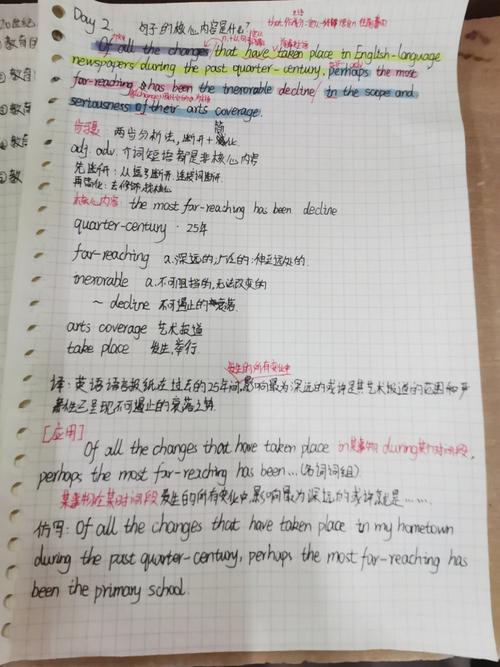 Day 2 句子的核心内容是什么?
Of all the changes that have taken place in English-language
newspapers during the past quarter-century, perhaps the most
far-reaching has been the inexorable decline in the scope and
seriousness of their arts coverage.
步骤 两步分析法,断开+简化
adj. adv. 介词短语都是非核心内容
先断开:从逗号断开.连接词断开.
再简化:去修饰,找核心
核心内容 the most far-reaching has been decline
quarter-century · 25年
far-reaching a.深远的,广泛的;伸至远处的.
inexorable a.不可阻挡的,无法改变的
~ decline 不可遏止的衰落
arts coverage 艺术报道
take place 发生,举行
发生的所有变化中
译:英语语言报纸在过去的25年间,影响最为深远的或许是其艺术报道的范围和严
肃性已呈现不可遏止的衰落之势.
[应用]
Of all the changes that have taken place in某事物 during某时间段,
perhaps the most far-reaching has been...(名词词组).
某事物在某时间段发生的所有变化中,影响最为深远的或许就是……
仿写: Of all the changes that have taken place in my hometown
during the past quarter-century, perhaps the most far-reaching has
been the primary school.